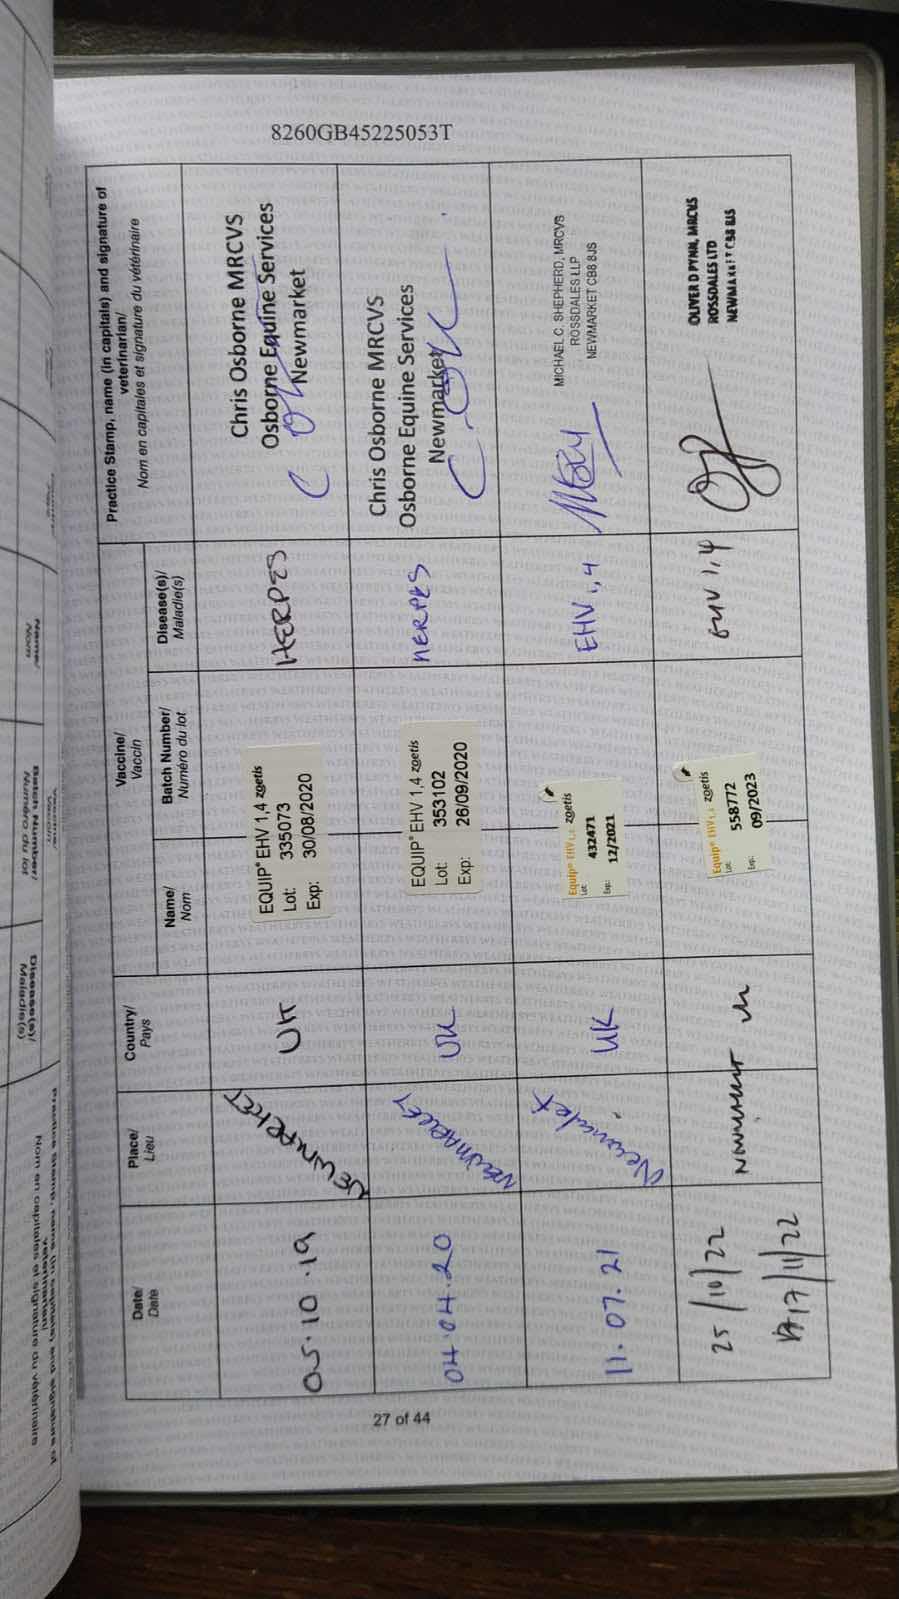 8260GB45225053T
Date/
Date
Place/
Lieu
Country/
Pays
Vaccine/
Vaccin
Name/
Nom
Batch Number/
Numéro du lot
Disease(s)/
Maladie(s)
Practice Stamp, name (in capitals) and signature of
veterinarian/
Nom en capitales et signature du vétérinaire
05.10.19
NEWMARKET
UK
EQUIP® EHV 1,4 zoetis
Lot: 335073
Exp: 30/08/2020
HERPES
Chris Osborne MRCVS
Osborne Equine Services
Newmarket
04.04.20
NEWMARKET
UK
EQUIP® EHV 1,4 zoetis
Lot: 353102
Exp: 26/09/2020
HERPES
Chris Osborne MRCVS
Osborne Equine Services
Newmarket
11.07.21
Newmarket
UK
Equip® EHV 1,4 zoetis
Lot: 432471
Exp: 12/2021
EHV 1,4
MICHAEL C. SHEPHERD, MRCVS
ROSSDALES LLP
NEWMARKET CB8 8JS
25/10/22
17/11/22
Newmarket
Equip® EHV 1,4 zoetis
Lot: 558772
Exp: 09/2023
EHV 1,4
OLIVER D PYNN, MRCVS
ROSSDALES LTD
NEWMARKET CB8 8JS
27 of 44
Name/
Nom
Batch Number/
Numéro du lot
Disease(s)/
Maladie(s)
Practice Stamp, name (in capitals) and signature of
veterinarian/
Nom en capitales et signature du vétérinaire